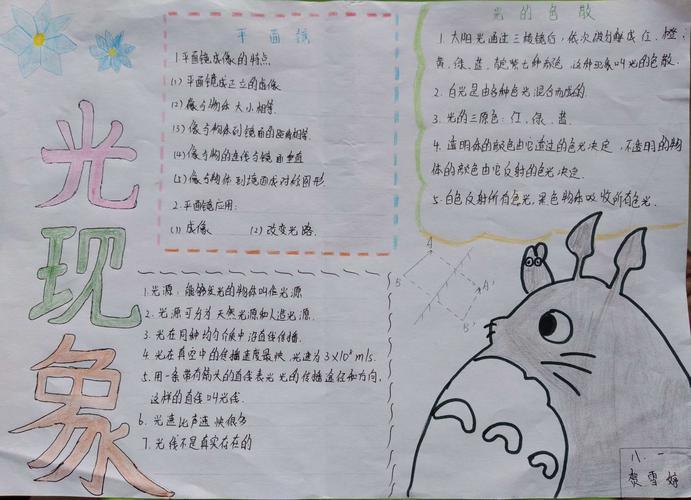 光现象
平面镜
1.平面镜成像的特点
(1) 平面镜成正立的虚像
(2) 像与物体大小相等
(3) 像与物体到镜面的距离相等.
(4) 像与物的连线与镜面垂直
(5) 像与物体到镜面成对称图形
2.平面镜应用:
(1) 成像 (2) 改变光路.
光的色散
1. 太阳光通过三棱镜后,依次被分解成红、橙、
黄、绿、蓝、靛紫七种颜色 这种现象叫光的色散.
2. 白光是由各种色光混合而成的
3. 光的三原色:红、绿、蓝.
4. 透明体的颜色由它透过的色光决定,不透明的物
体的颜色由它反射的色光决定.
5. 白色反射所有色光,黑色物体吸收所有色光.
1.光源:能够发光的物体叫作光源
2. 光源可分为天然光源和人造光源.
3. 光在同种均匀介质中沿直线传播.
4. 光在真空中的传播速度最快,光速为3×10⁸m/s.
5. 用一条带有箭头的直线表光光的传播途径和方向,
这样的直线叫光线.
6. 光速比声速快很多
7. 光线不是真实存在的
A
B
A'
B'
八.一
贺雪婷